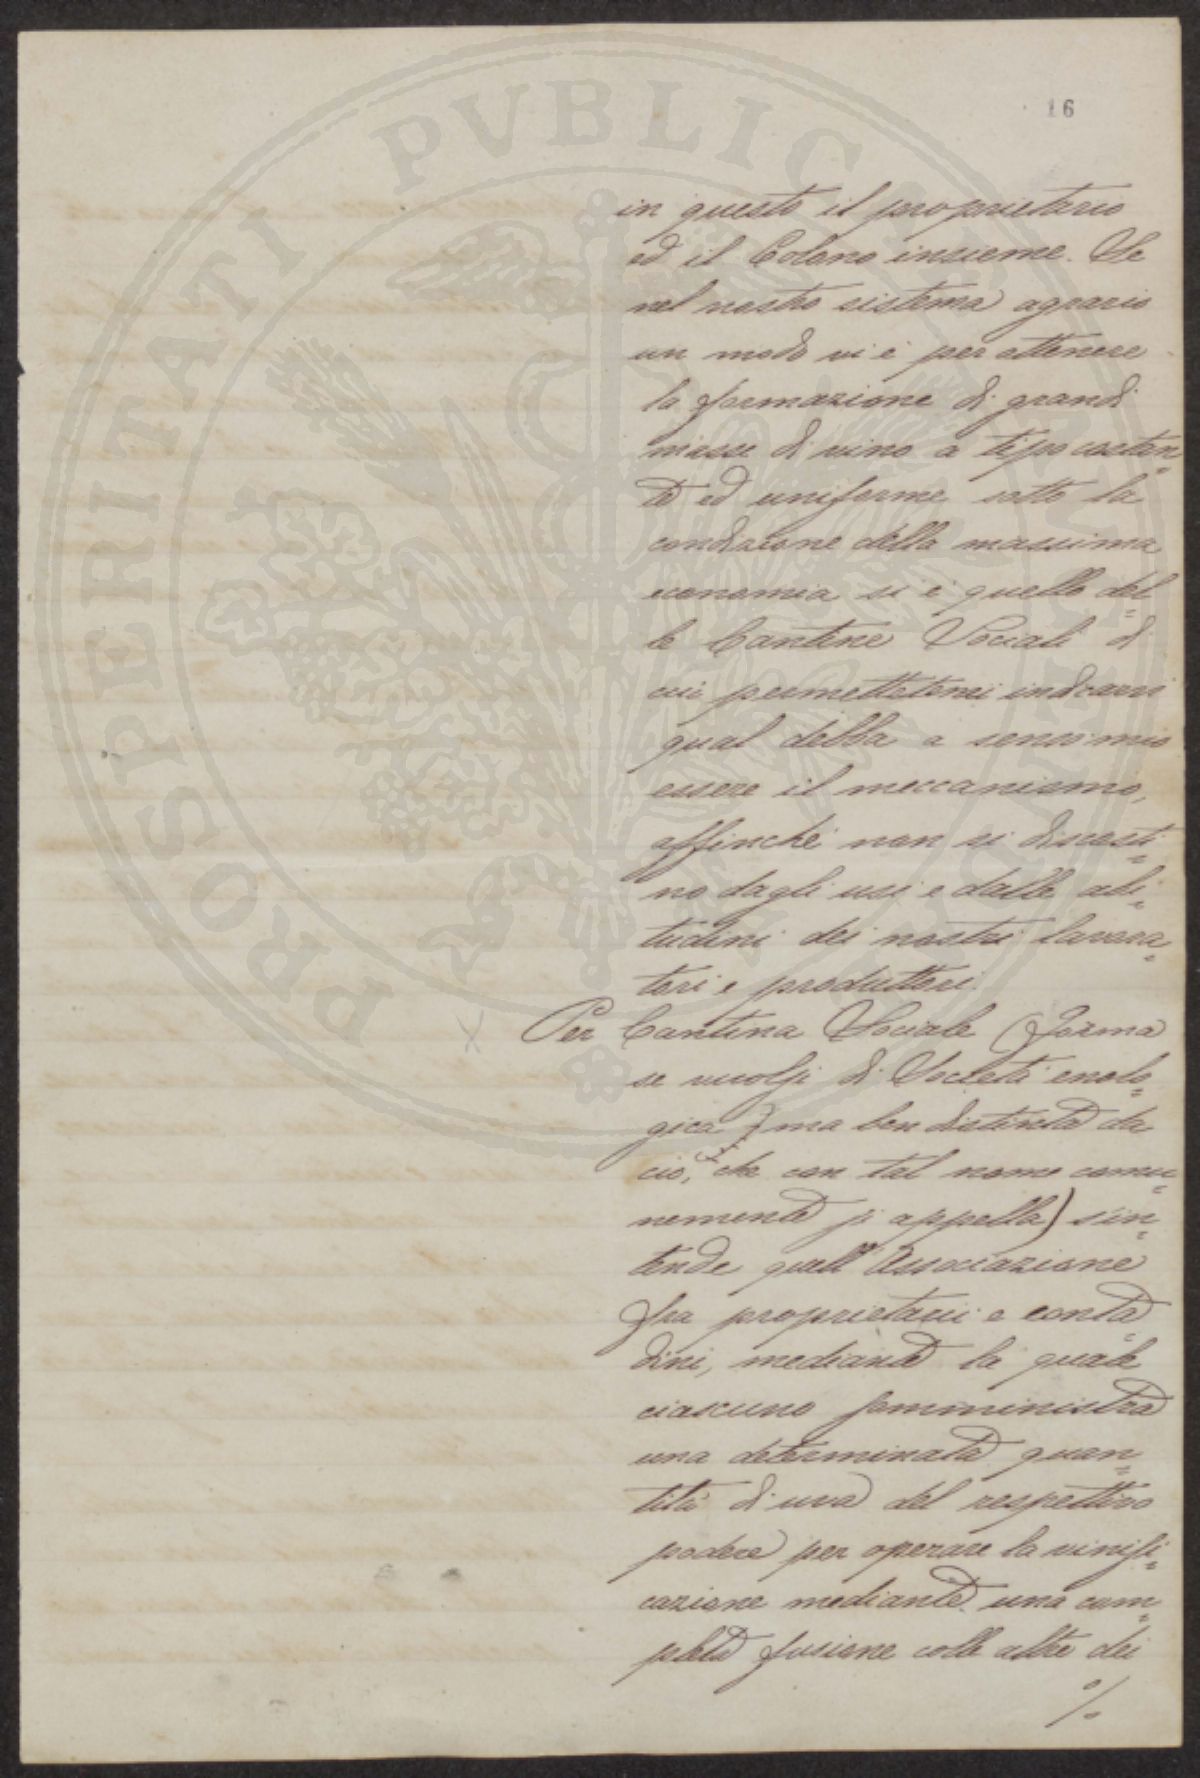 16
in questo il proprietario
ed il Colono insieme. Se
nel nostro sistema agrario
un modo vi è per ottenere
la formazione di grandi
masse di vino a tipo costan=
te ed uniforme sotto la
condizione della massima
economia si è quello del=
le Cantine Sociali di
cui permettetemi indicarvi
qual debba a senso mio
essere il meccanismo,
affinchè non si discosti=
no dagli usi e dalle abi=
tudini dei nostri lavora=
tori e produttori.
Per Cantina Sociale (forma
se vuolsi di Società enolo=
gica, ma ben distinta da
ciò, che con tal nome comu=
nemente si appella) s'in=
tende quell'Associazione
fra proprietarii e conta=
dini, mediante la quale
ciascuno somministra
una determinata quan=
tità di uva del respettivo
podere per operare la vinifi=
cazione mediante una com=
pleta fusione colle altre dei
%
PROSPERITATI PVBLICAE